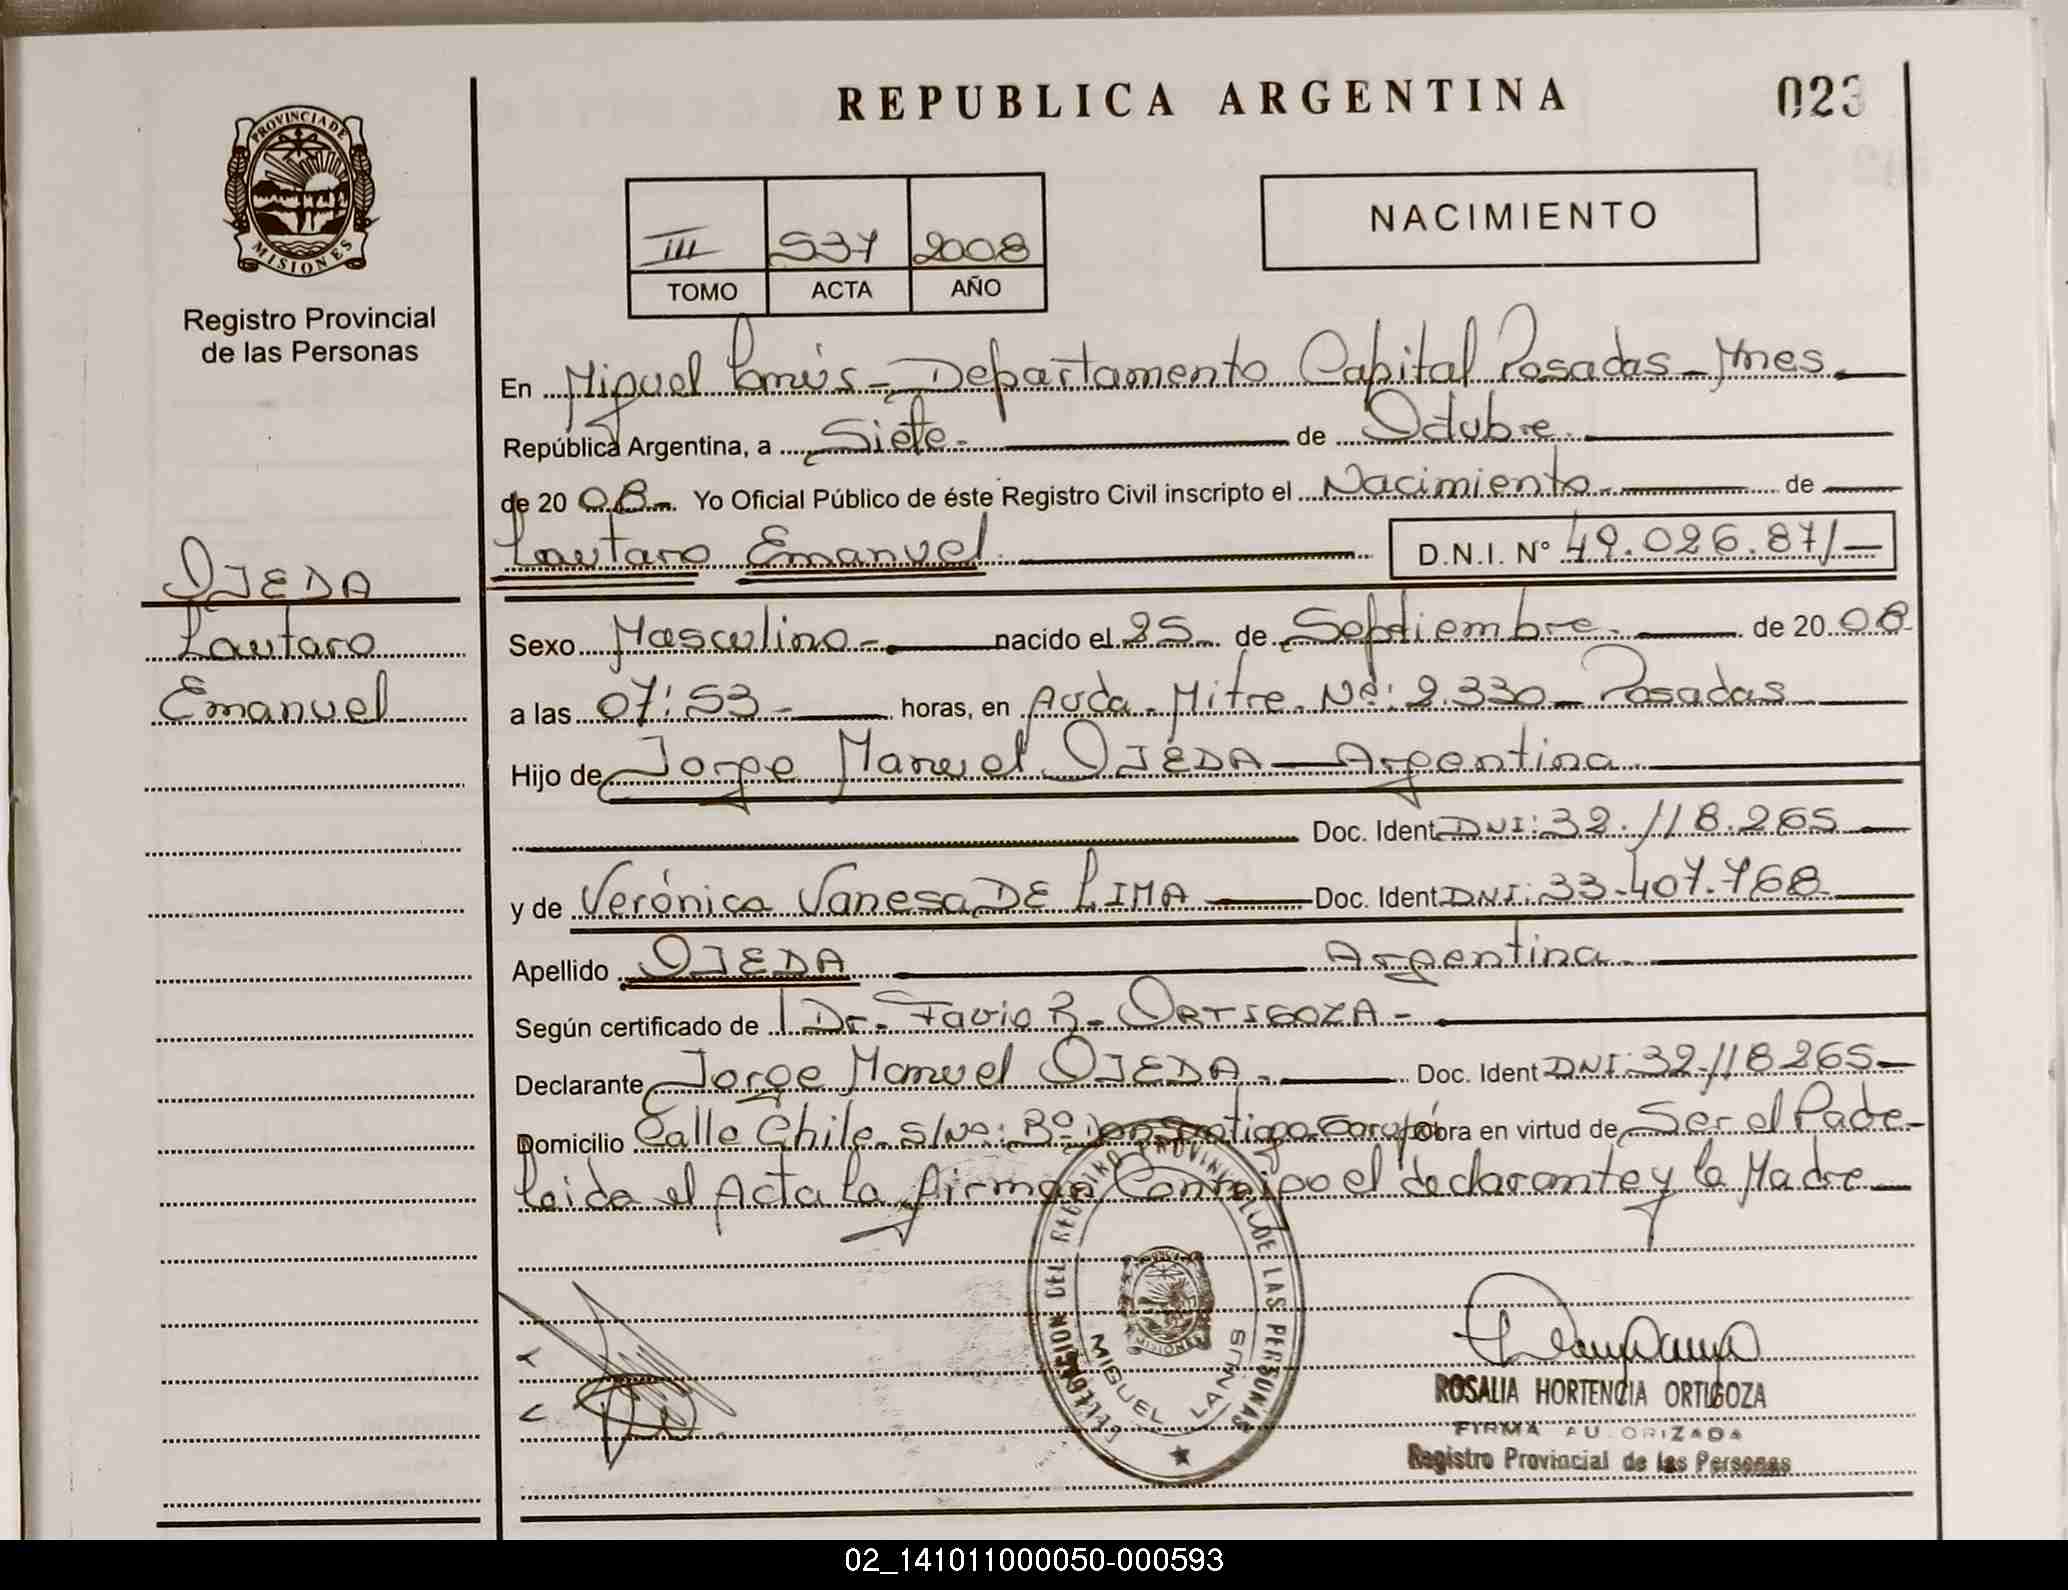 REPUBLICA ARGENTINA
023
PROVINCIA DE
MISIONES
Registro Provincial
de las Personas
III 537 2008
TOMO ACTA AÑO
NACIMIENTO
En Miguel Lanús - Departamento Capital Posadas - Mnes
República Argentina, a Siete - de Octubre
de 20 08 Yo Oficial Público de éste Registro Civil inscripto el Nacimiento de
Lautaro Emanuel D.N.I. N° 49.026.871
OJEDA
Lautaro
Emanuel
Sexo Masculino - nacido el 25 de Septiembre de 20 08
a las 07:53 - horas, en Avda. Mitre Nº: 2.330 - Posadas
Hijo de Jorge Manuel OJEDA - Argentina
Doc. Ident DNI: 32.118.265
y de Verónica Vanesa DE LIMA Doc. Ident DNI: 33.407.768
Apellido OJEDA Argentina
Según certificado de Dr. Favio R. ORTIGOZA -
Declarante Jorge Manuel OJEDA - Doc. Ident DNI: 32.118.265
Domicilio Calle Chile S/Nº: Bº Garupá Obra en virtud de Ser el Padre
leida el Acta la firman Conmigo el declarante y la Madre
DELEGACION DEL REGISTRO PROVINCIAL DE LAS PERSONAS
MIGUEL LANUS
ROSALIA HORTENCIA ORTIGOZA
FIRMA AUTORIZADA
Registro Provincial de las Personas
02_141011000050-000593